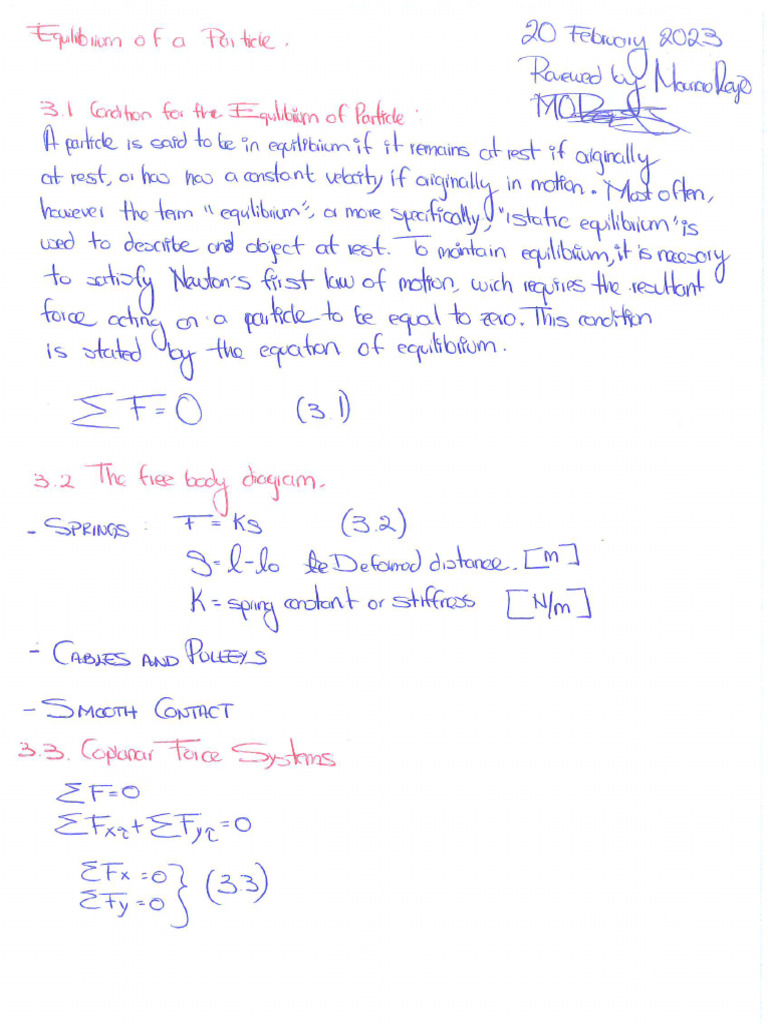 Equilibrium of a Particle.
20 February 2023
Reviewed by Marcio
MOD
3.1 Condition for the Equilibium of Particle:
A particle is said to be in equilibium if it remains at rest if originally
at rest, or has has a constant velocity if originally in motion. Most often,
however the term "equlibrium", or more specifically, "static equilibrium" is
used to describe and object at rest. To maintain equilibrium, it is necesory
to satisfy Newton's first law of motion, wich requries the resultant
force acting on a particle to be equal to zero. This condition
is stated by the equation of equilibrium.
ΣF=0 (3.1)
3.2 The free body diagram.
- SPRINGS: F=Ks (3.2)
S=l-lo Deformed distance. [m]
K=spring constant or stiffness [N/m]
- CABLES AND PULLEYS
- SMOOTH CONTACT
3.3. Coplanar Force Systems
ΣF=0
ΣFxi+ΣFyi=0
ΣFx=0
ΣFy=0 } (3.3)